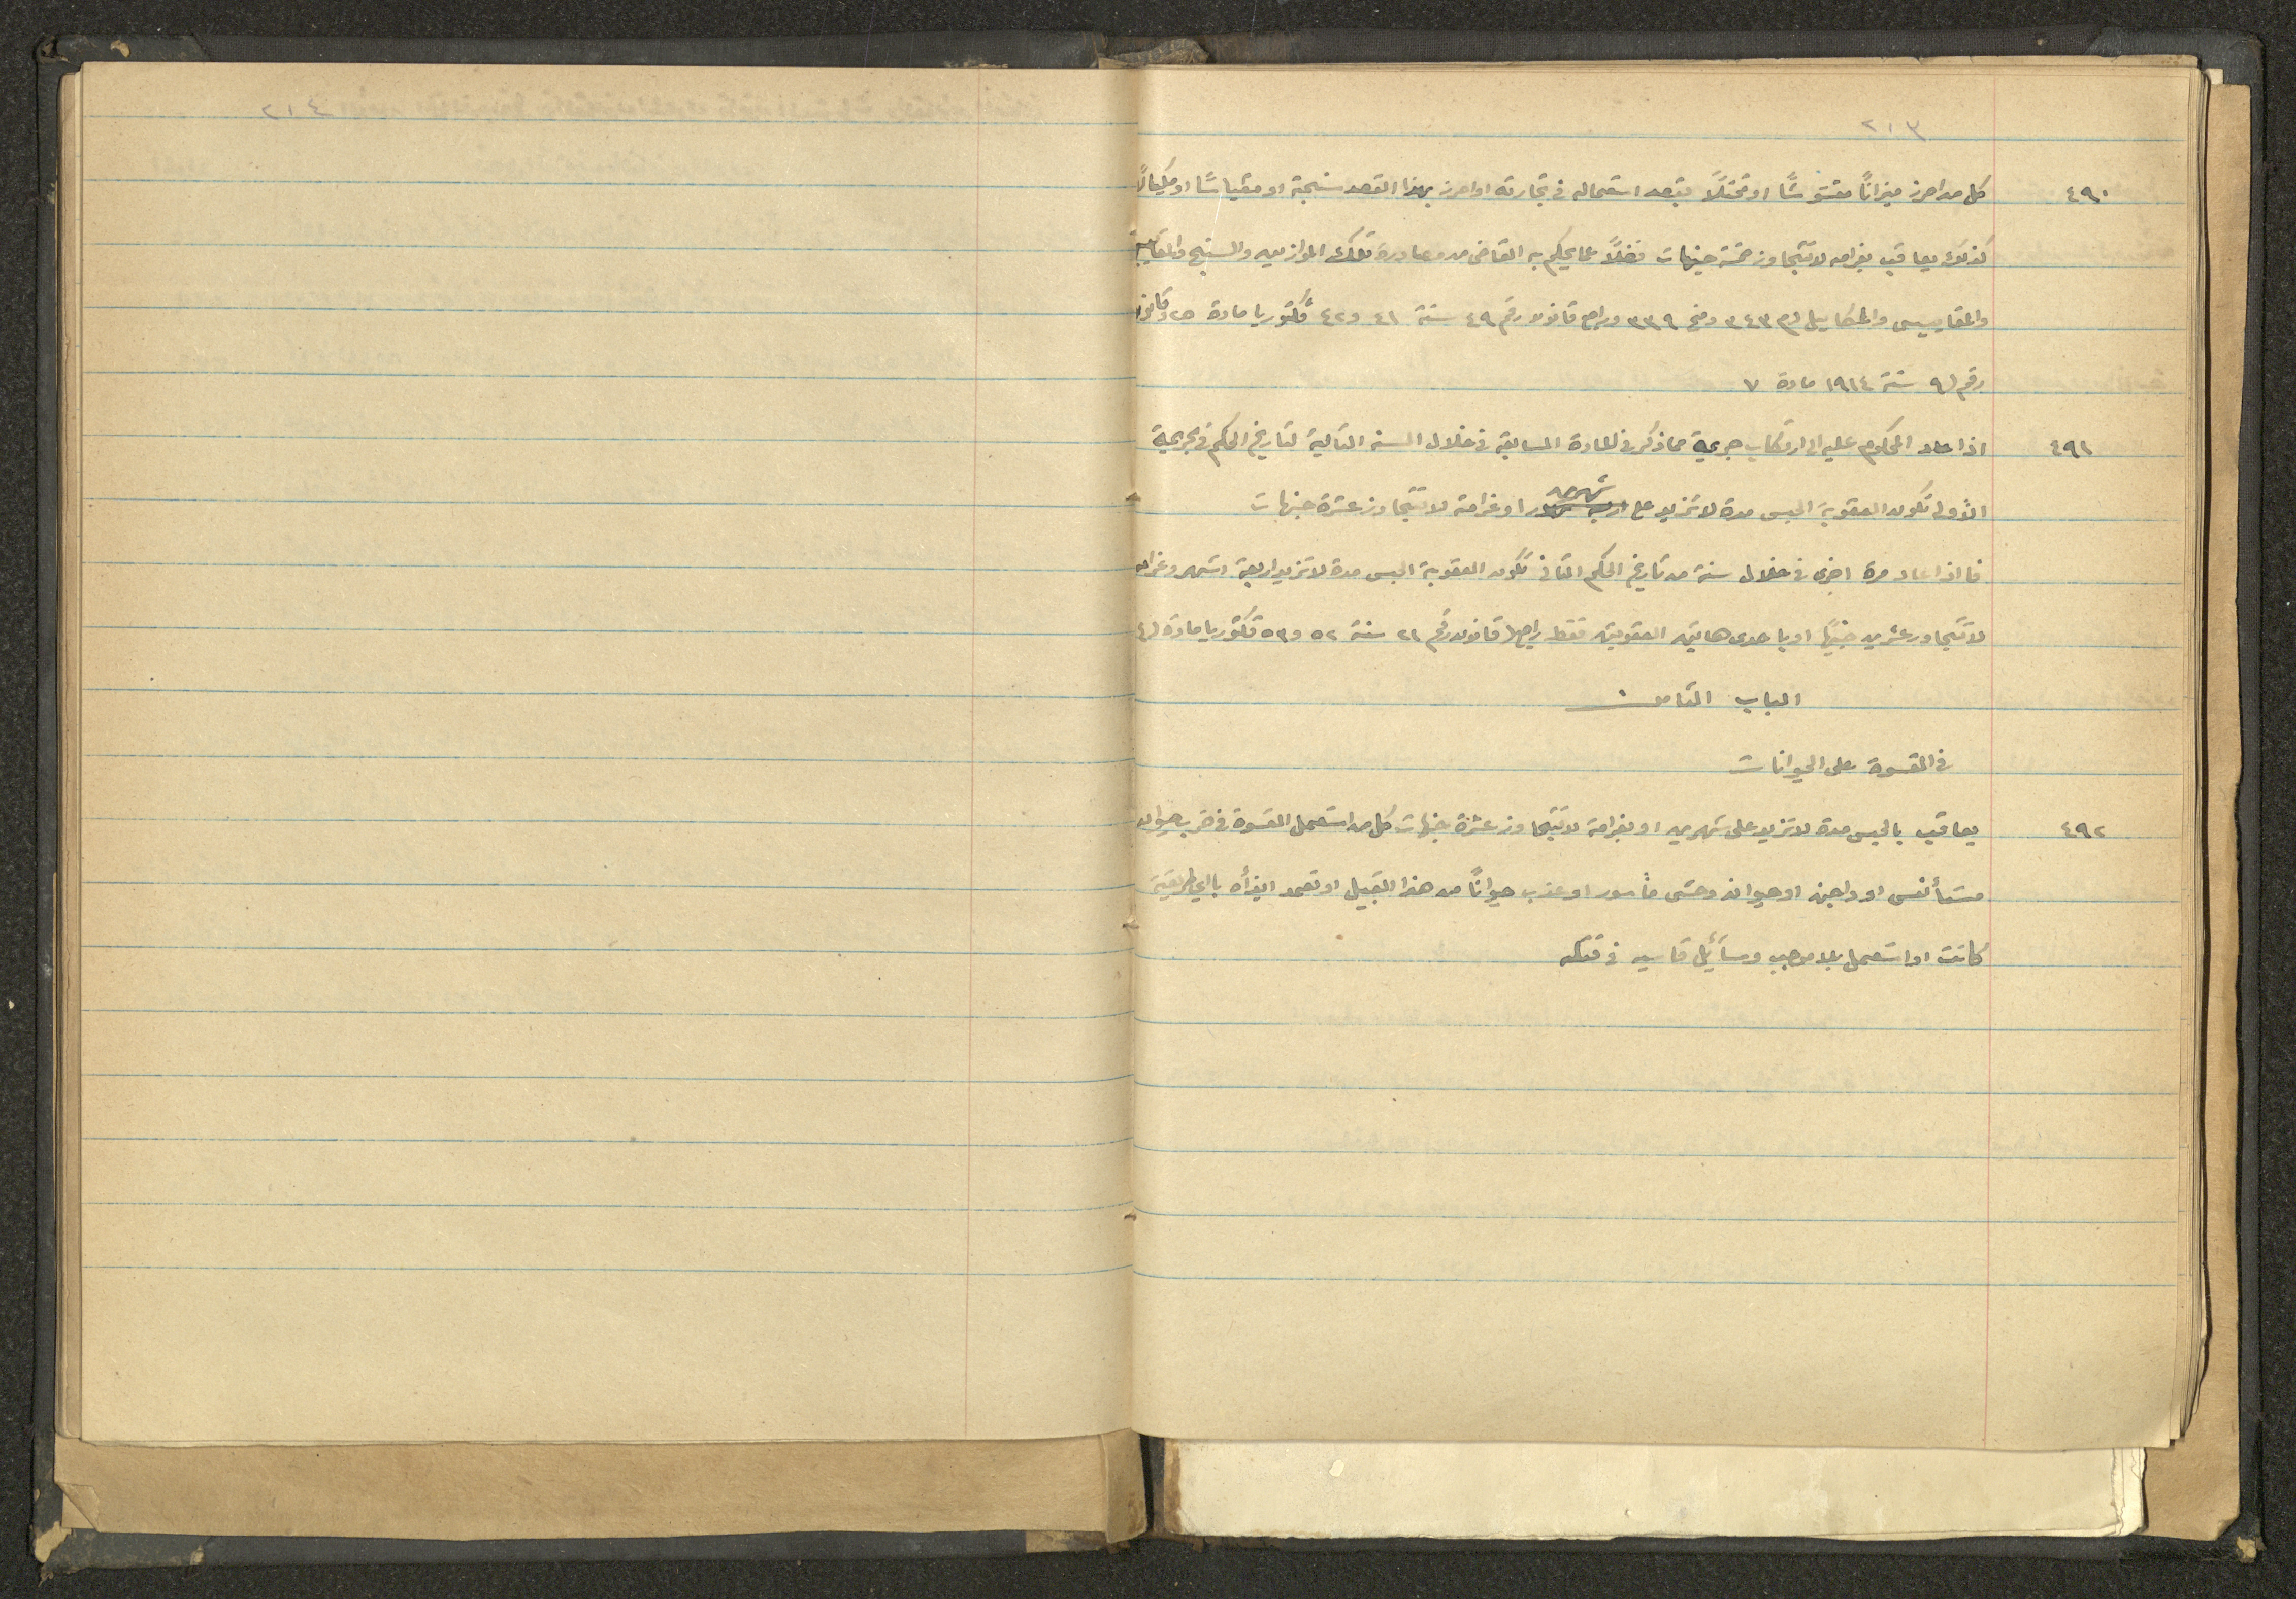 ٢١٣
٤٩٠ كل من احرز ميزانًا مغشوشًا او مختلًا بقصد استعماله في تجارته او احرز بهذا القصد سنجة او مقياسًا او مكيالًا
كذلك يعاقب بغرامه لا تتجاوز خمسة جنيهات فضلًا عما يحكم به القاضى من مصادرة تلك الموازين والسنج
والمقاييس والمكاييل ٣٤٣ ٣٣٩ وراجع قانون رقم ٤٩ سنة ٤١ و٤٢ ڤكتوريا مادة ٢٥ وقانون
رقم ٩ سنة ١٩١٤ مادة ٧
٤٩١ اذا عاد المحكوم عليه الى ارتكاب جريمة مما ذكر في المادة السابقة في خلال السنه التالية لتاريخ الحكم في الجريمة
الأولى تكون العقوبة الحبس مدة لا تزيد على شهرين او غرامة لا تتجاوز عشرة جنيهات
فاذا عاد مرة اخرى في خلال سنة من تاريخ الحكم الثانى تكون العقوبة الحبس مدة لا تزيد اربعة اشهر وغرامه
لا تتجاوز عشرين جنيهًا او باحدى هاتين العقوبتين فقط راجع قانون رقم ٢١ سنة ٥٢ و٥٣ ڤكتوريا مادة
الباب الثامن
في القسوة على الحيوانات
٤٩٢ يعاقب بالحبس مدة لا تزيد على شهرين او بغرامة لا تتجاوز عشرة جنيهات كل من استعمل القسوة في ضرب حيوان
مستأنس او داجن او حيوان وحشى مأسور او عذب حيوانًا من هذا القبيل او تعمد ايذأه باي طريقة
كانت او استعمل بلا موجب وسائل قاسيه في قتله
٢١٤